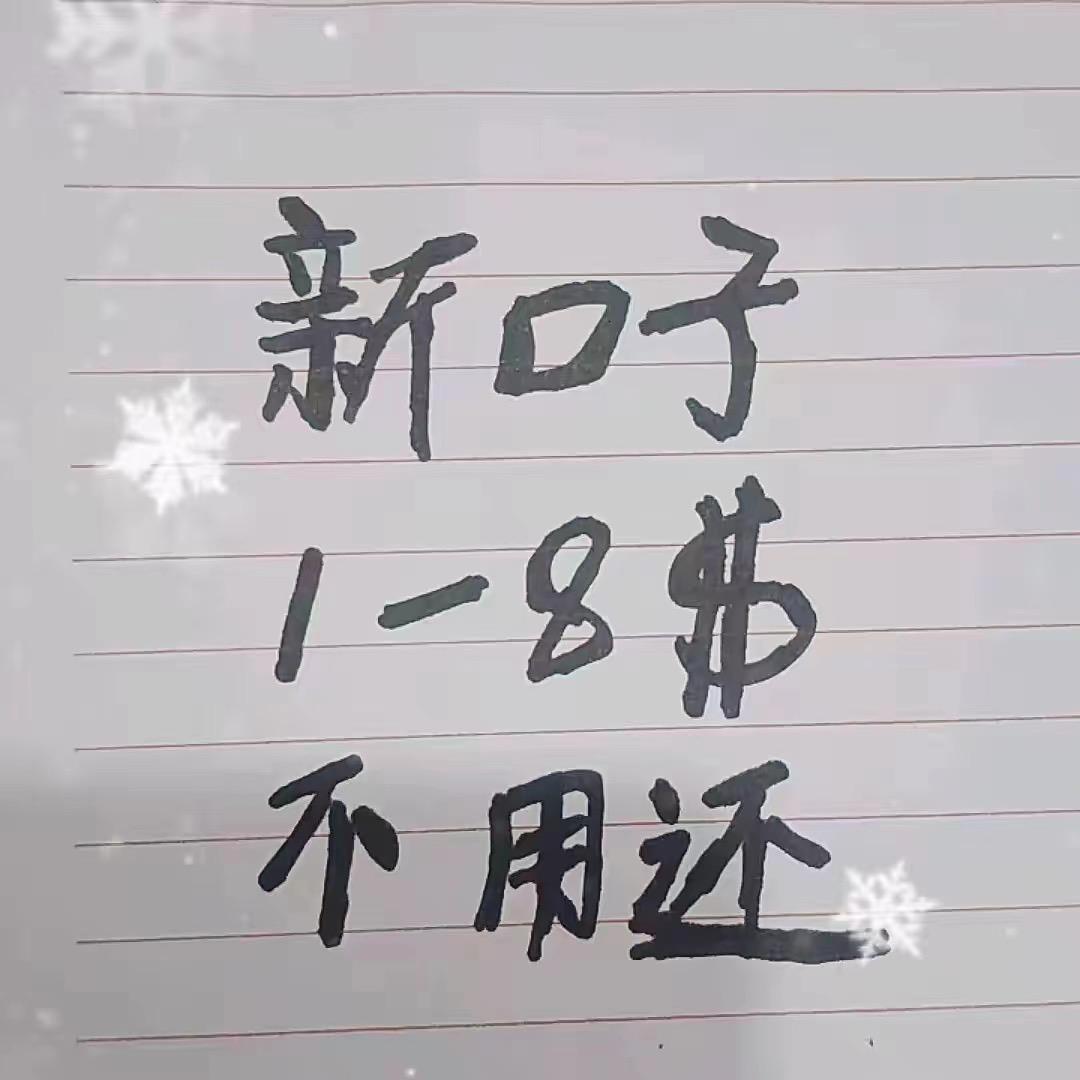 新口子
1-8$
不用还